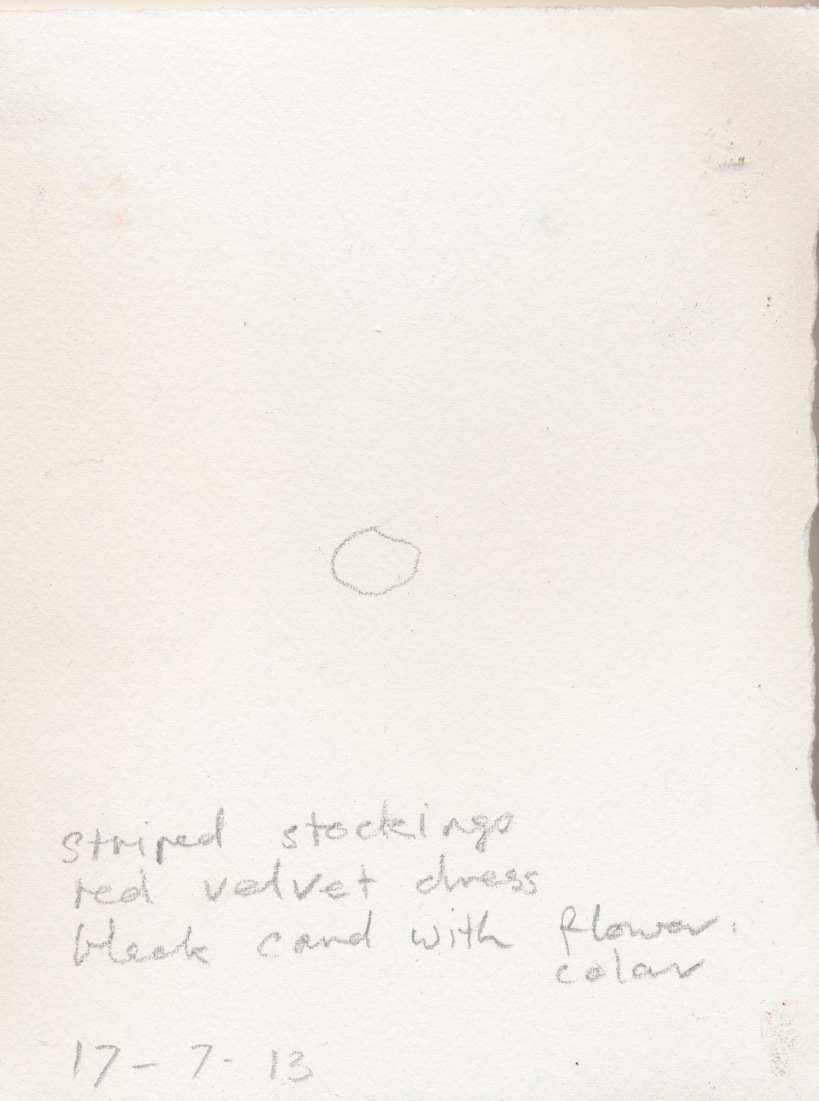 striped stockings
red velvet dress
black card with flower.
colar
17-7-13